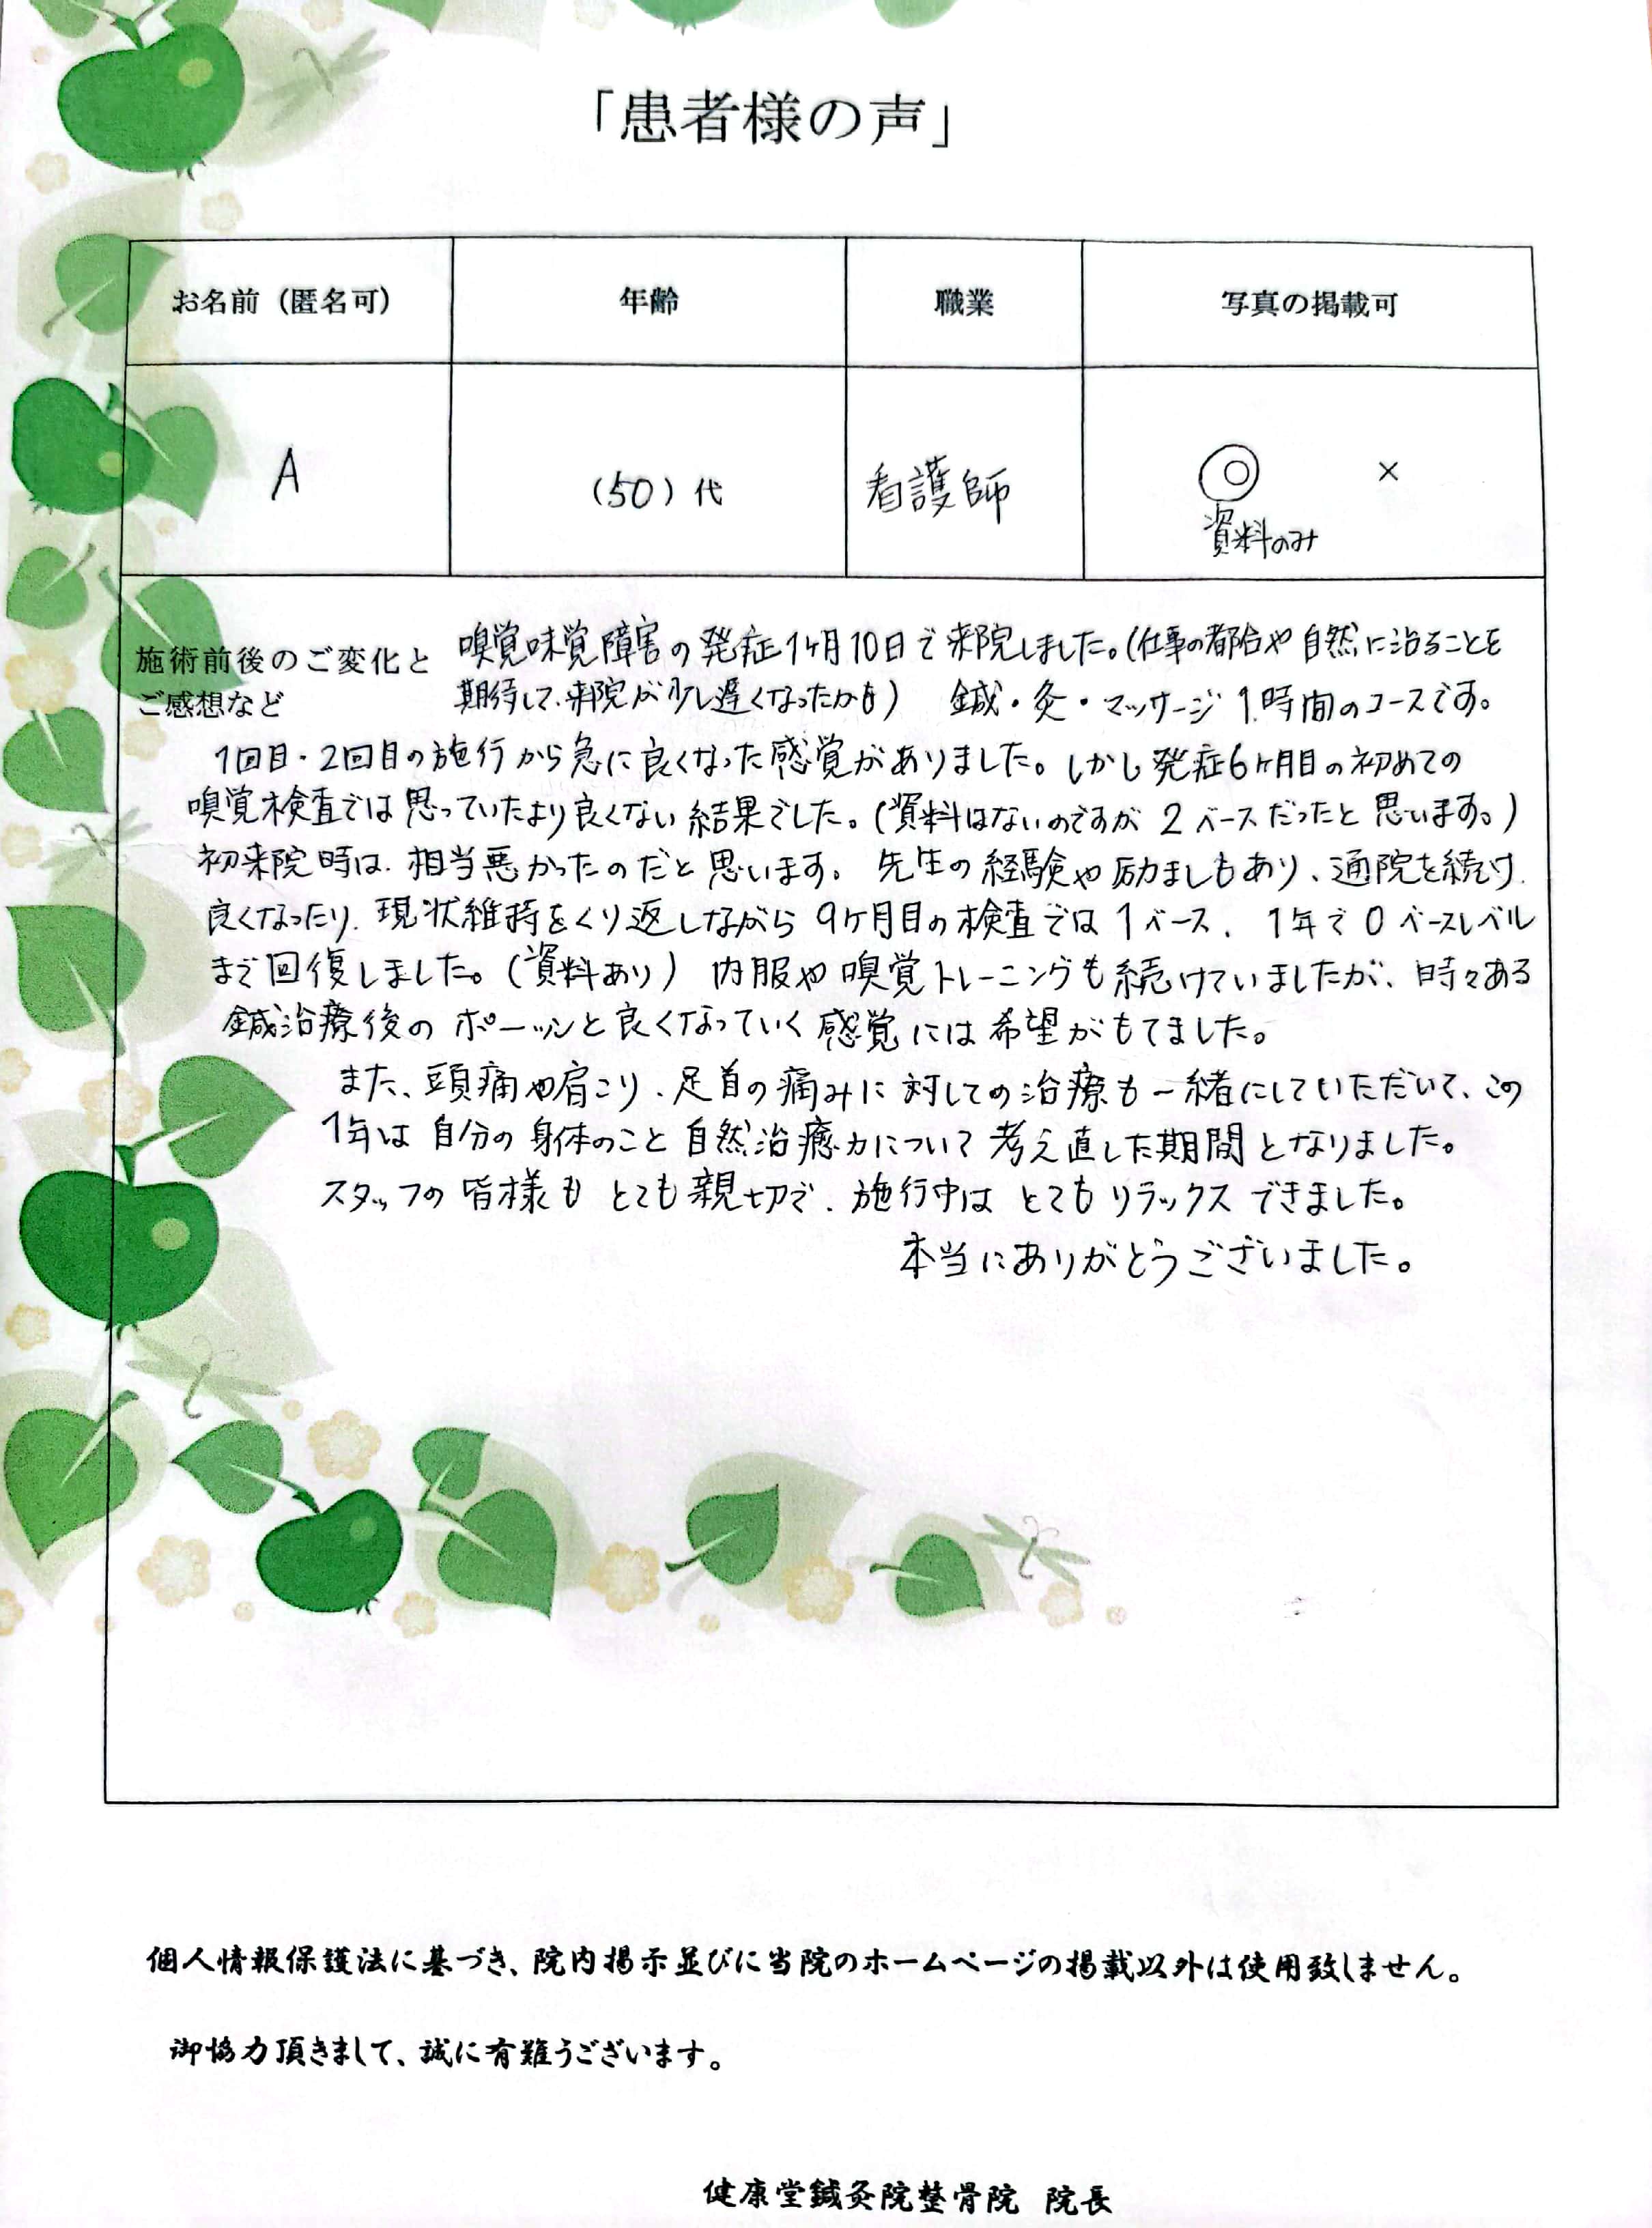 「患者様の声」
お名前（匿名可） 年齢 職業 写真の掲載可
A （50）代 看護師 ○ ×
資料のみ
施術前後のご変化と
ご感想など
嗅覚味覚障害の発症1ヶ月10日で来院しました。（仕事の都合や自然に治ることを
期待して、来院が少し遅くなったかも） 鍼・灸・マッサージ 1時間のコースです。
1回目・2回目の施行から急に良くなった感覚がありました。しかし発症6ヶ月目の初めての
嗅覚検査では思っていたより良くない結果でした。（資料はないのですが 2ベースだったと思います。）
初来院時は、相当悪かったのだと思います。先生の経験や励ましもあり、通院を続け、
良くなったり、現状維持をくり返しながら9ヶ月目の検査では1ベース、1年で0ベースレベル
まで回復しました。（資料あり） 内服や嗅覚トレーニングも続けていましたが、時々ある
鍼治療後のポーッンと良くなっていく感覚には希望がもてました。
また、頭痛や肩こり、足首の痛みに対しての治療も一緒にしていただいて、この
1年は自分の身体のこと自然治癒力について考え直した期間となりました。
スタッフの皆様もとても親切で、施行中はとてもリラックスできました。
本当にありがとうございました。
個人情報保護法に基づき、院内掲示並びに当院のホームページの掲載以外は使用致しません。
御協力頂きまして、誠に有難うございます。
健康堂鍼灸院整骨院 院長